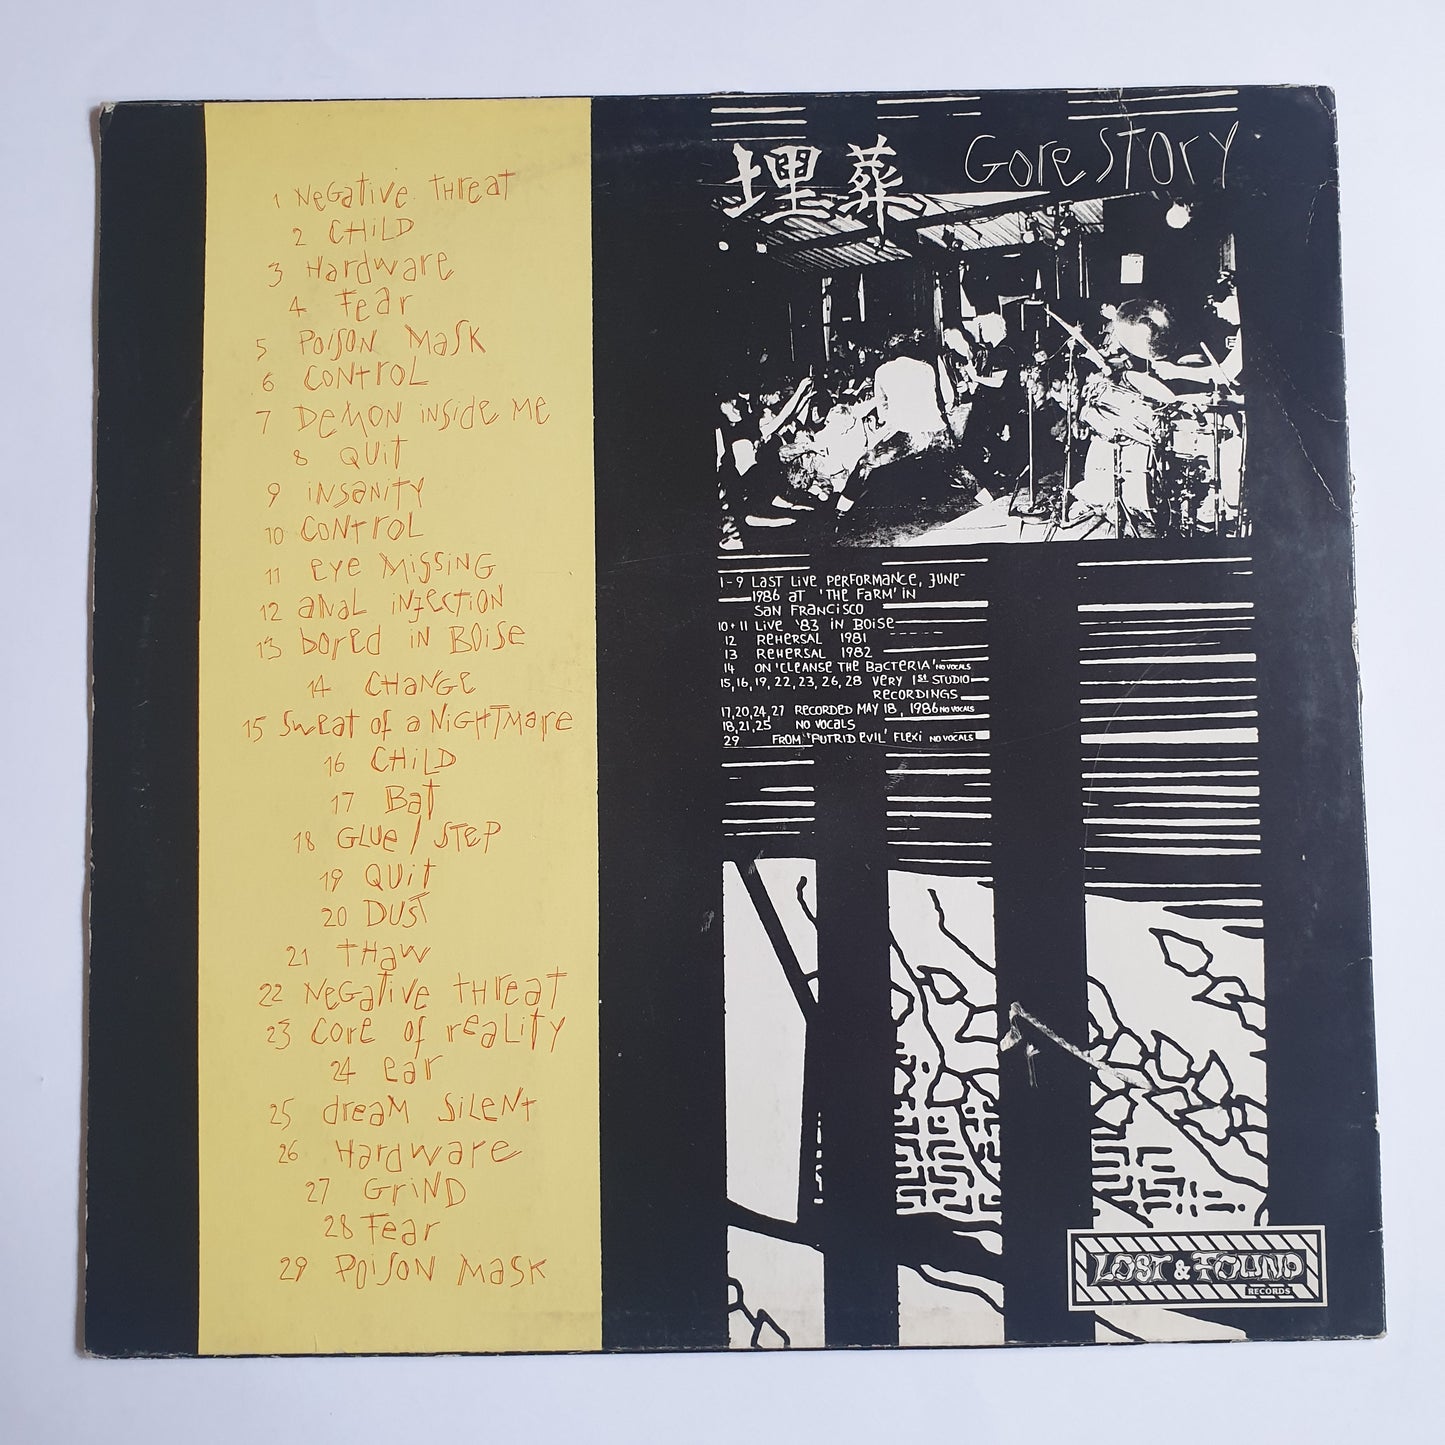 1 Negative Threat
2 Child
3 Hardware
4 Fear
5 Poison Mask
6 Control
7 Demon inside me
8 Quit
9 insanity
10 Control
11 eye Missing
12 anal injection
13 bored in Boise
14 Change
15 Sweat of a Nightmare
16 Child
17 Bat
18 Glue / Step
19 Quit
20 Dust
21 Thaw
22 Negative Threat
23 Core of reality
24 ear
25 dream Silent
26 Hardware
27 Grind
28 Fear
29 Poison Mask
埋葬 Gore Story
1-9 LAST LIVE PERFORMANCE, JUNE
1986 AT 'THE FARM' IN
SAN FRANCISCO
10+11 LIVE '83 IN BOISE
12 REHERSAL 1981
13 REHERSAL 1982
14 ON 'CLEANSE THE BACTERIA' NO VOCALS
15,16,19,22,23,26,28 VERY 1ST STUDIO
RECORDINGS
17,20,24,27 RECORDED MAY 18, 1986 NO VOCALS
18,21,25 NO VOCALS
29 FROM 'PUTRID EVIL' FLEXI NO VOCALS
LOST & FOUND
RECORDS